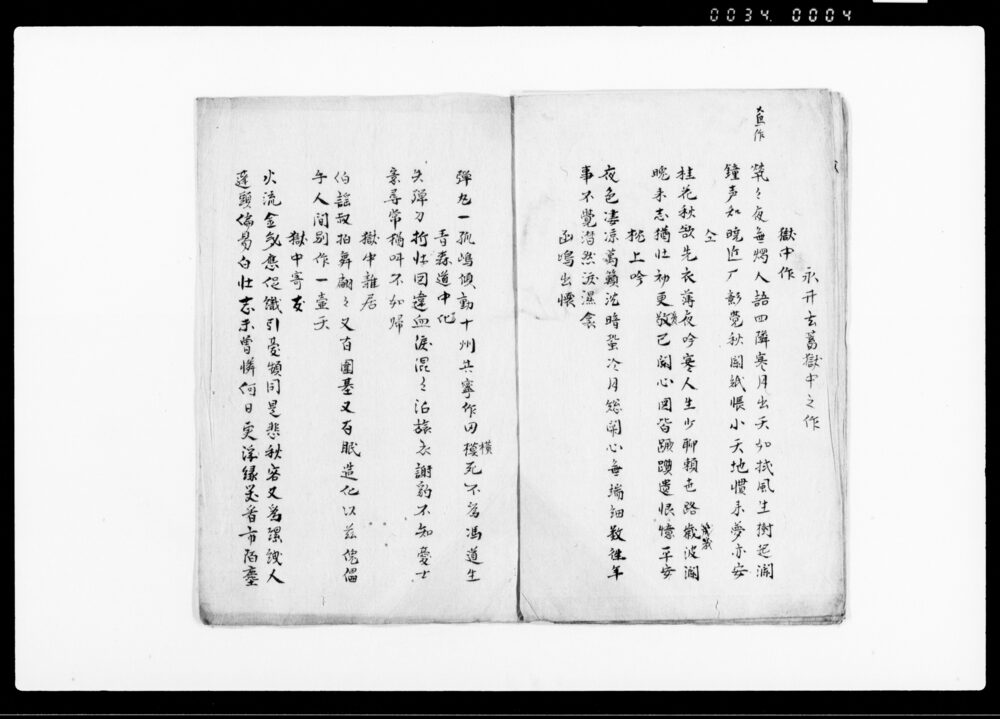 0034 0004
永井玄蕃獄中之作
獄中作
直作
煢々夜無燭人語四隣寒月出天如拭風生樹起瀾
鐘声知曉近 影覚秋闌紙帳小天地慣来夢亦安
仝
桂花秋欲先衣薄夜吟寒人生少聊頼世路
晩来志猶壮初更 已闌心図皆蹶躓遺恨憶平安
枕上吟
夜色凄凉万籟沈暗蛩冷月総関心無端細数往年
事不覚潜然涙湿衾
函嶋出懐
弾丸一孤嶋傾動十州兵寧作田横死不為馮道生
横
青森道中作
矢弾刀折壮図違血涙混々泊旅衣謝豹不知憂士
意尋常猶叫不如帰
獄中雑居
伯謡叔拍舞翩々又有囲碁又有眠造化以茲傀儡
手人間別作一壷天
獄中寄友
火流金気応促織引憂頻同是悲秋客又為縲紲人
蓬鬢偏易白壮志未曽憐何日更浮緑 市陌塵